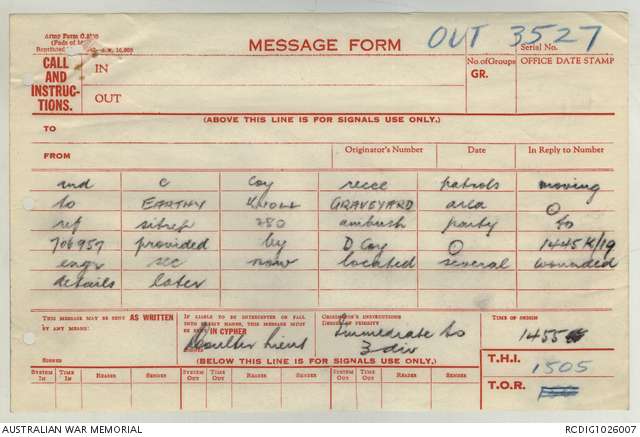 Army Form C.
(Pads of
MESSAGE FORM
OUT 3527
Serial No.
CALL AND INSTRUC- TIONS.
IN
OUT
No. of Groups
GR.
OFFICE DATE STAMP
(ABOVE THIS LINE IS FOR SIGNALS USE ONLY.)
TO
FROM
Originator's Number
Date
In Reply to Number
and C Coy recce patrols moving
to EARTHY KNOLL GRAVEYARD area O
ref sitrep 280 ambush party to
706957 provided by D Coy O 1445K/19
engr sec now located several wounded
details later
THIS MESSAGE MAY BE SENT AS WRITTEN BY ANY MEANS.
SIGNED
IF LIABLE TO BE INTERCEPTED OR FALL INTO ENEMY HANDS, THIS MESSAGE MUST BE SENT IN CYPHER
Lieut
ORIGINATOR'S INSTRUCTIONS
DEGREE OF PRIORITY
Immediate to
3 div
TIME OF ORIGIN
1455
(BELOW THIS LINE IS FOR SIGNALS USE ONLY.)
T.H.I. 1505
T.O.R.
SYSTEM IN
TIME IN
READER
SENDER
SYSTEM OUT
TIME OUT
READER
SENDER
SYSTEM OUT
TIME OUT
READER
SENDER
AUSTRALIAN WAR MEMORIAL
RCDIG1026007